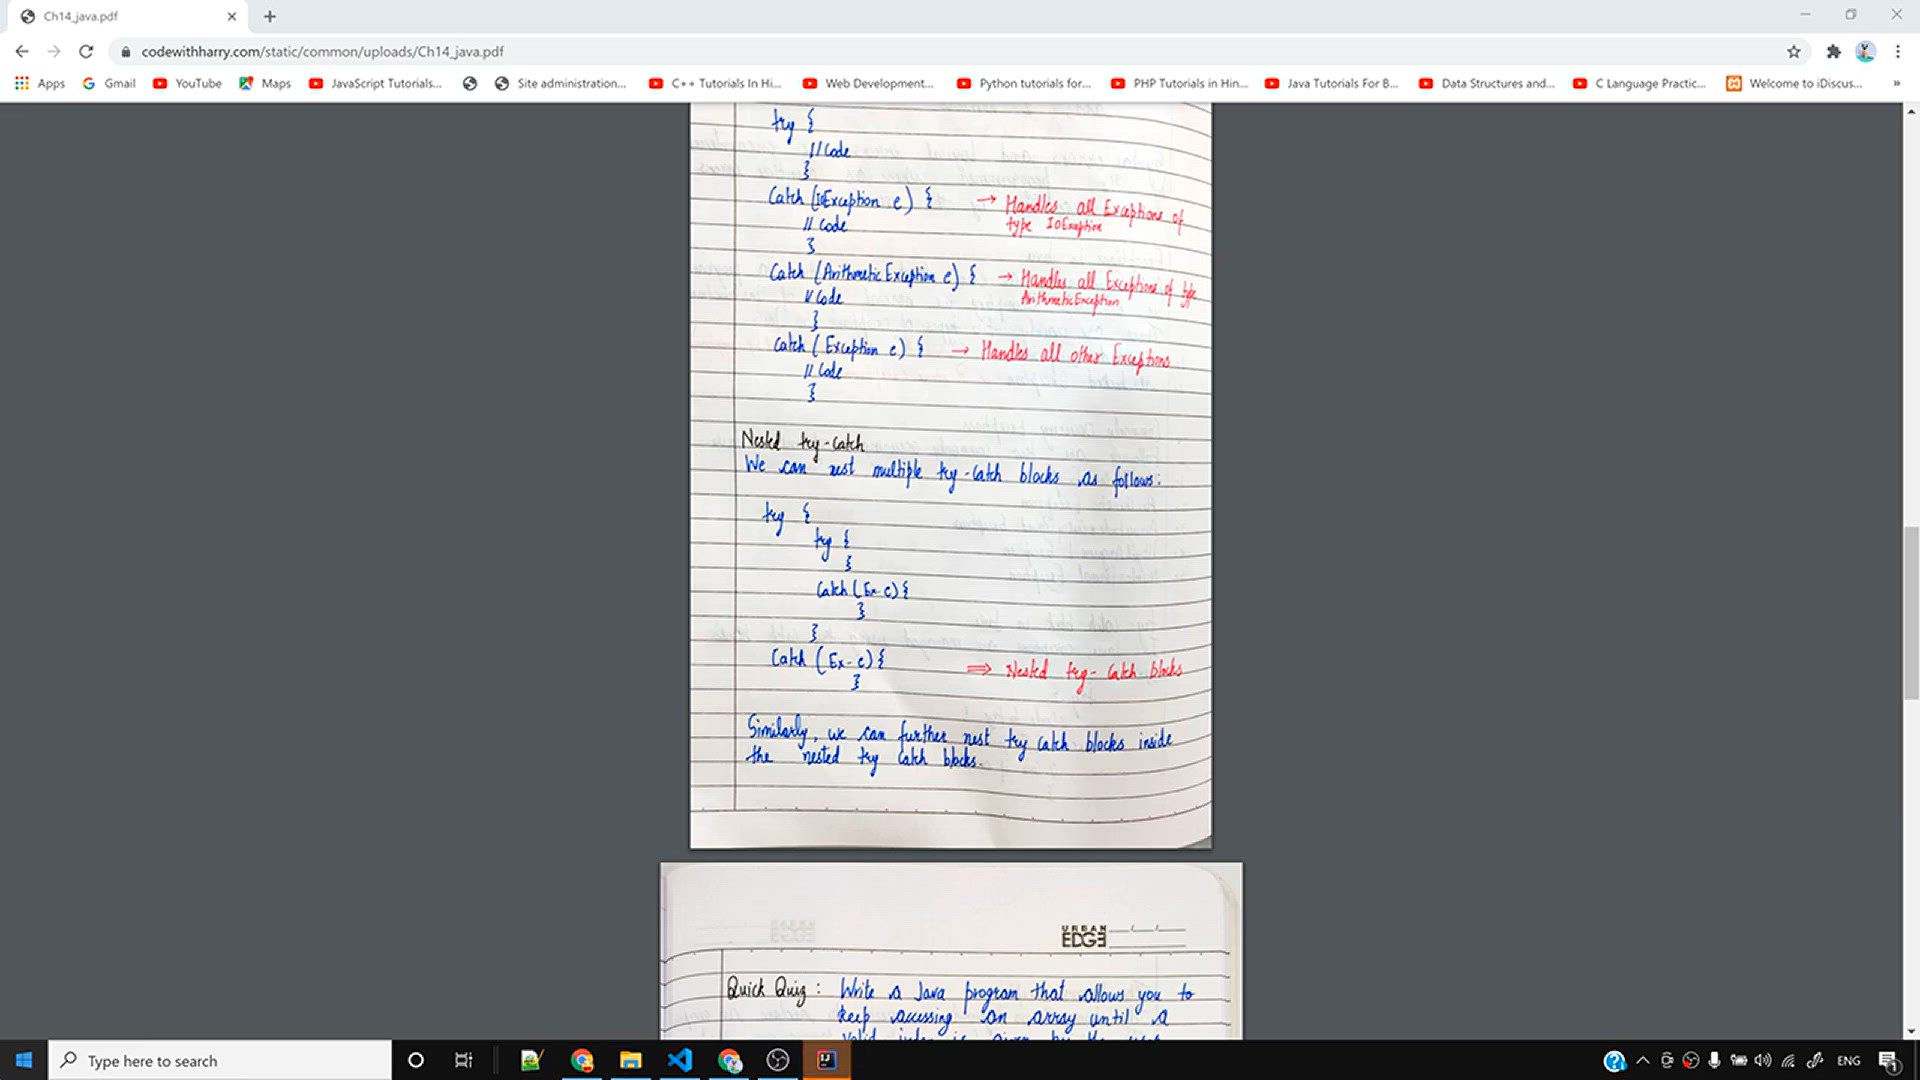 Ch14_java.pdf
codewithharry.com/static/common/uploads/Ch14_java.pdf
Apps Gmail YouTube Maps JavaScript Tutorials... Site administration... C++ Tutorials In Hi... Web Development... Python tutorials for... PHP Tutorials in Hin... Java Tutorials For B... Data Structures and... C Language Practic... Welcome to iDiscus... »
try {
// Code
}
Catch (IOException e) { → Handles all Exceptions of
type IOException
// Code
}
Catch (ArithmeticException e) { → Handles all Exceptions of type
ArithmeticException
// Code
}
Catch (Exception e) { → Handles all other Exceptions
// Code
}
Nested try-catch
We can nest multiple try-catch blocks as follows:
try {
try {
}
Catch (Ex-c) {
}
}
Catch (Ex-c) { ⇒ Nested try-catch blocks
}
Similarly, we can further nest try catch blocks inside
the nested try catch blocks.
URBAN
EDGE
Quick Quiz : Write a Java program that allows you to
keep accessing an array until a
valid index is given by the user
Type here to search
ENG